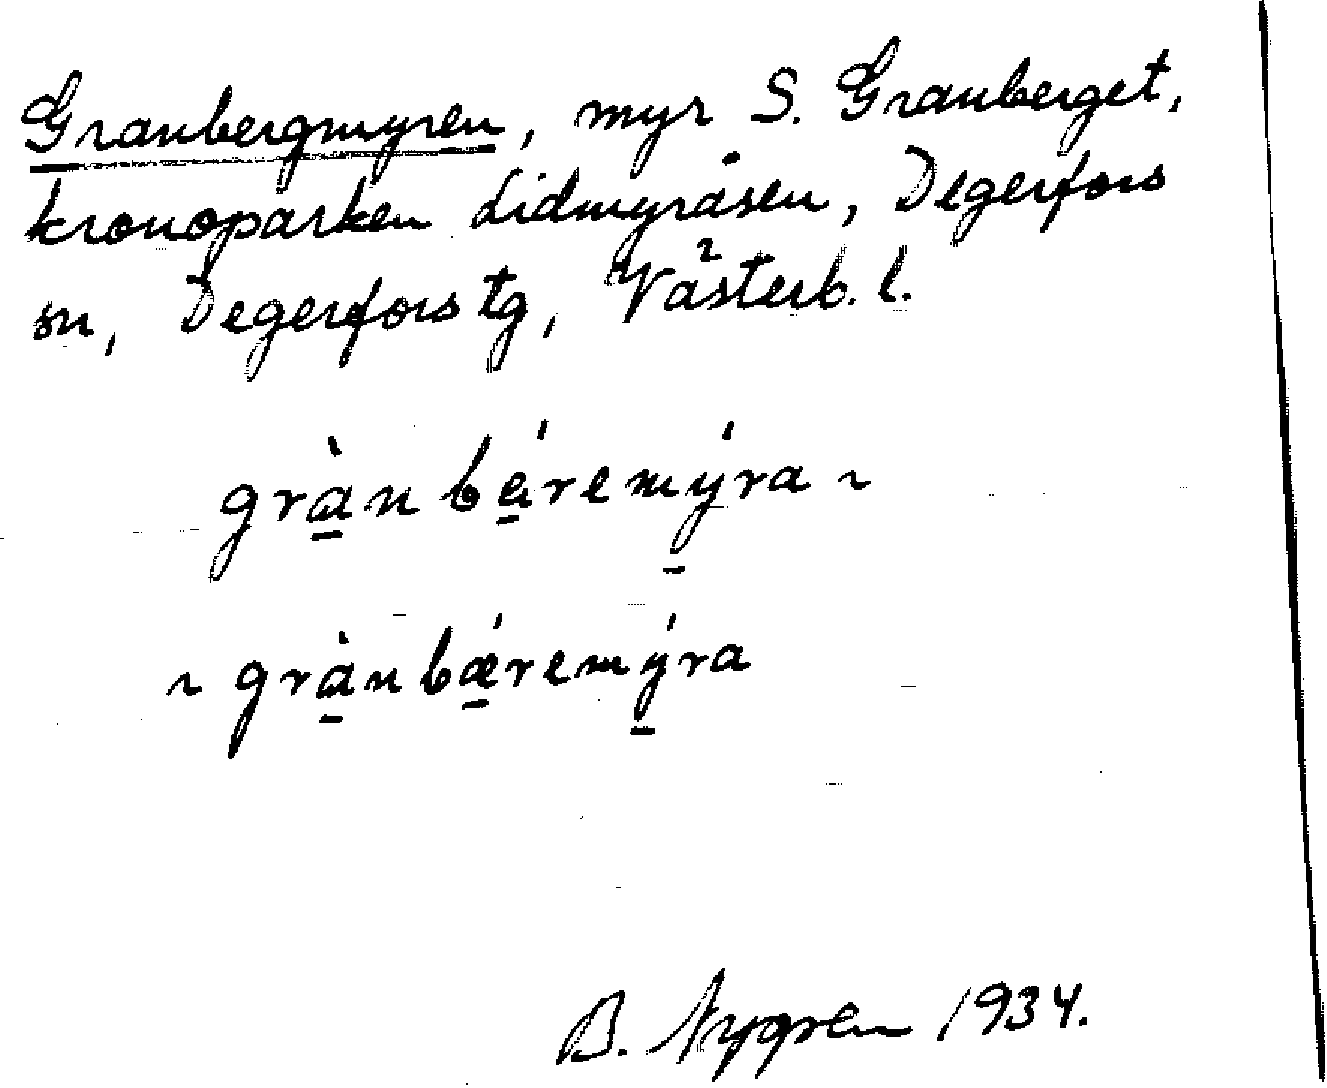 Granbergmyren, myr S. Granberget,
kronoparken Lidmyråsen, Degerfors
sn, Degerfors tg, Västerb. l.
grànbáremýra ~
~ grànbǽremýra
B. Nygren 1934.